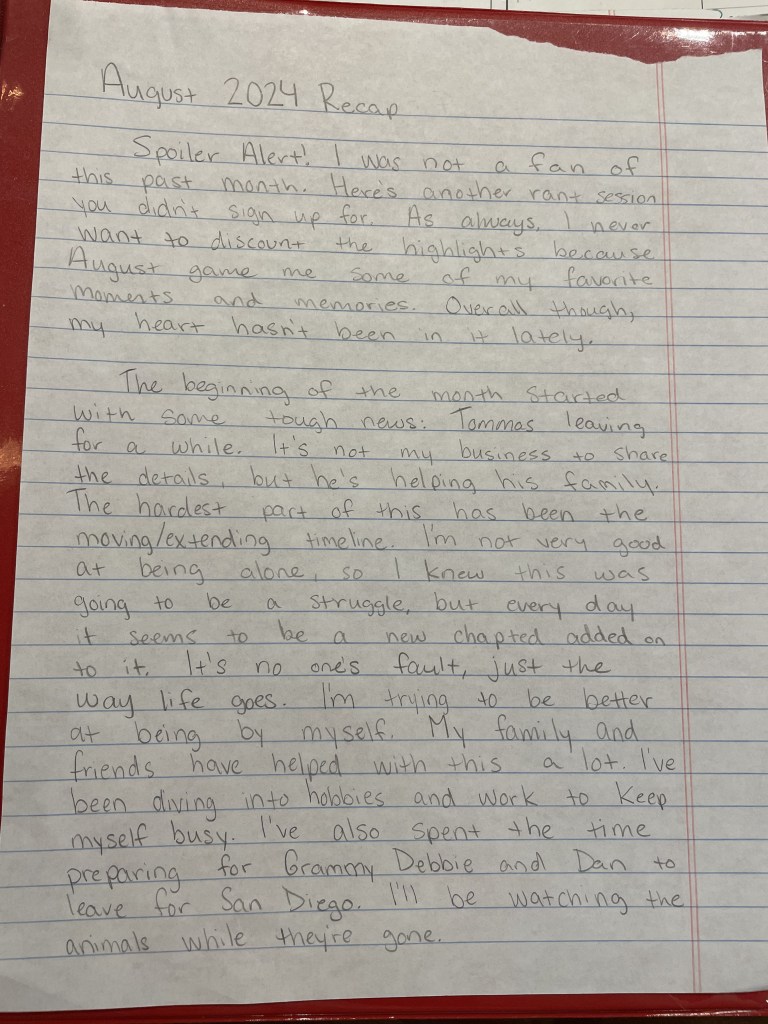 August 2024 Recap
Spoiler Alert! I was not a fan of
this past month. Here's another rant session
you didn't sign up for. As always, I never
want to discount the highlights because
August game me some of my favorite
moments and memories. Overall though,
my heart hasn't been in it lately.
The beginning of the month started
with some tough news: Tommas leaving
for a while. It's not my business to share
the details, but he's helping his family.
The hardest part of this has been the
moving/extending timeline. I'm not very good
at being alone, so I knew this was
going to be a struggle, but every day
it seems to be a new chapted added on
to it. It's no one's fault, just the
way life goes. I'm trying to be better
at being by myself. My family and
friends have helped with this a lot. I've
been diving into hobbies and work to keep
myself busy. I've also spent the time
preparing for Grammy Debbie and Dan to
leave for San Diego. I'll be watching the
animals while they're gone.